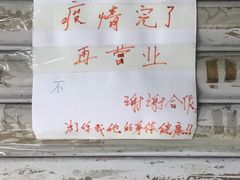 疫情完了
再营业
不
谢谢合作
为了你我他的身体健康!!